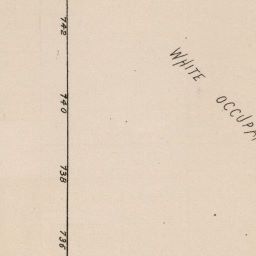 742
740
738
736
WHITE
OCCUPA